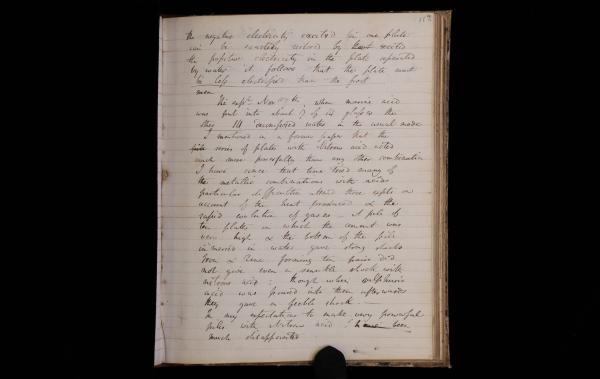 112
the negative electricity excited in one plate
can be exactly by that excited
the positive electricity in the plate separated
by water it follows that the plate must
be less electrified than the first
The expt Nov 7th, when marine acid
was put into about 7 of the glasses the
they still decomposed water in the usual mode
I mentioned in a former paper that the
series of plates with Nitrous acid acted
much more powerfully than any other combination
I have since that time tried many of
the metallic combinations with acids
particular difficulties attend these expts on
account of the heat produced & the
rapid evolution of gases – A pile of
ten plates in which the cement was
very high & the bottom of the pile
immersed in water gave strong shocks
Iron & Zinc forming ten pairs did
not give even a sensible shock with
nitrous acid : though when sulphuric
acid was poured into them afterwards
they gave a feeble shock –
In my expectations to make very powerful
piles with Nitrous acid I have been
much disappointed